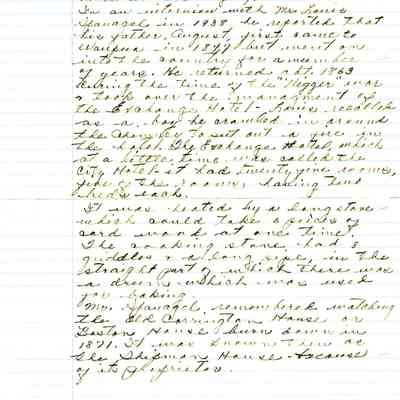 In an interview with Mr. Louis
in 1938 he reported that
his father, August, first came to
Waupun in 1849 but went on
into the country for a number
of years. He returned abt. 1863
during the time of the war
& took over the management of
the Exchange Hotel - Louis recalled
as a boy he crawled in around
the chimney to set out a fire in
the hotel. The Exchange Hotel, which
at a time was called the
City Hotel. it had twenty five rooms,
the rooms, having two
beds each.
It was heated by a long stove -
which could take 4 pieces of
cord wood at one time.
The cooking stove had 8
griddles & a long pipe, in the
straight part of which there was
a drum - which was used
for baking.
Mr. remembered watching
the old Carrington House or
Boston House burn down in
1871. It was known then as
the Shipman House because -
of its proprietor.